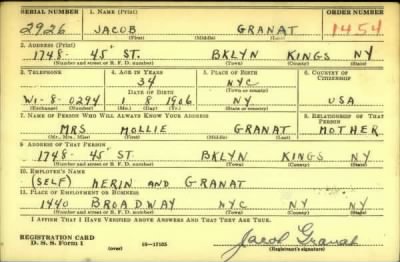 SERIAL NUMBER 1. NAME (Print) ORDER NUMBER
2926 JACOB GRANAT 1454
(First) (Middle) (Last)
2. ADDRESS (Print)
1748- 45 ST. BKLYN KINGS NY
(Number and street or R. F. D. number) (Town) (County) (State)
3. TELEPHONE 4. AGE IN YEARS 5. PLACE OF BIRTH 6. COUNTRY OF CITIZENSHIP
34 NYC
DATE OF BIRTH (Town or county)
WI-8-0294 1 8 1906 NY USA
(Exchange) (Number) (Mo.) (Day) (Yr.) (State or country)
7. NAME OF PERSON WHO WILL ALWAYS KNOW YOUR ADDRESS 8. RELATIONSHIP OF THAT PERSON
MRS MOLLIE GRANAT MOTHER
(Mr., Mrs., Miss) (First) (Middle) (Last)
9. ADDRESS OF THAT PERSON
1748- 45 ST BKLYN KINGS N.Y
(Number and street or R. F. D. number) (Town) (County) (State)
10. EMPLOYER'S NAME
(SELF) MERIN AND GRANAT
11. PLACE OF EMPLOYMENT OR BUSINESS
1440 BROADWAY NYC NY NY
(Number and street or R. F. D. number) (Town) (County) (State)
I AFFIRM THAT I HAVE VERIFIED ABOVE ANSWERS AND THAT THEY ARE TRUE.
REGISTRATION CARD
D. S. S. Form 1 (over) 16-17105 Jacob Granat
(Registrant's signature)